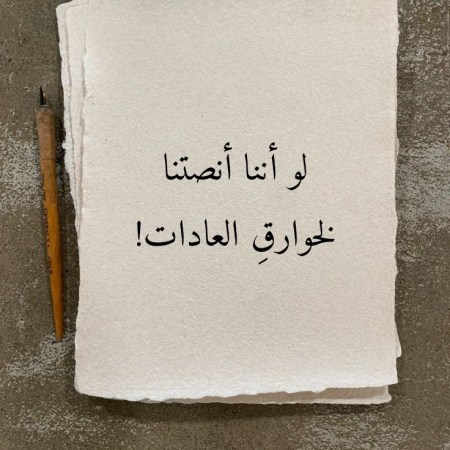 لو أننا أنصتنا
لخوارقِ العادات!